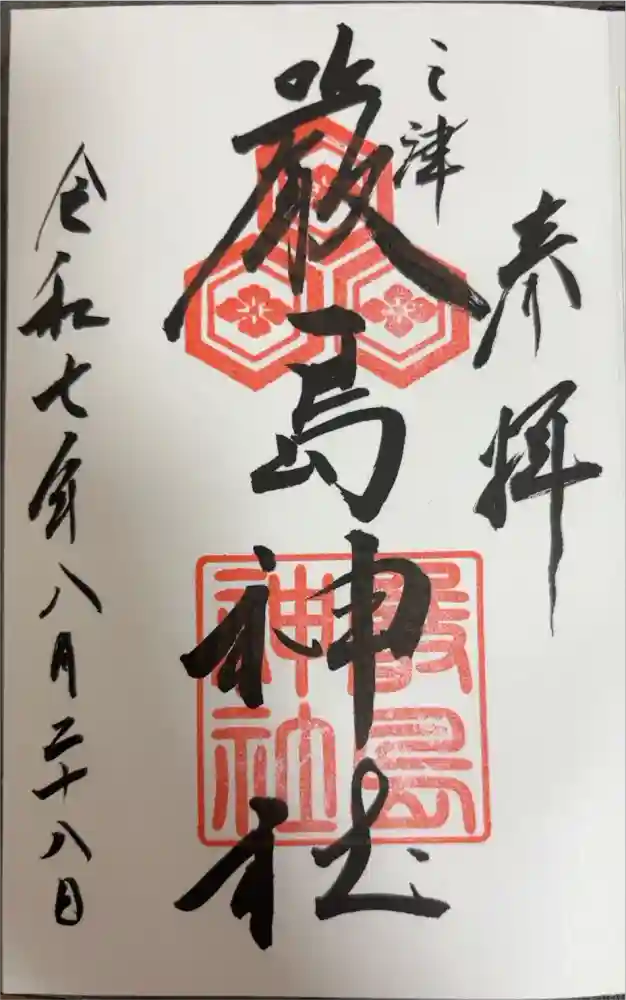 奉拝
三津
厳島神社
厳島
神社
令和七年八月二十八日